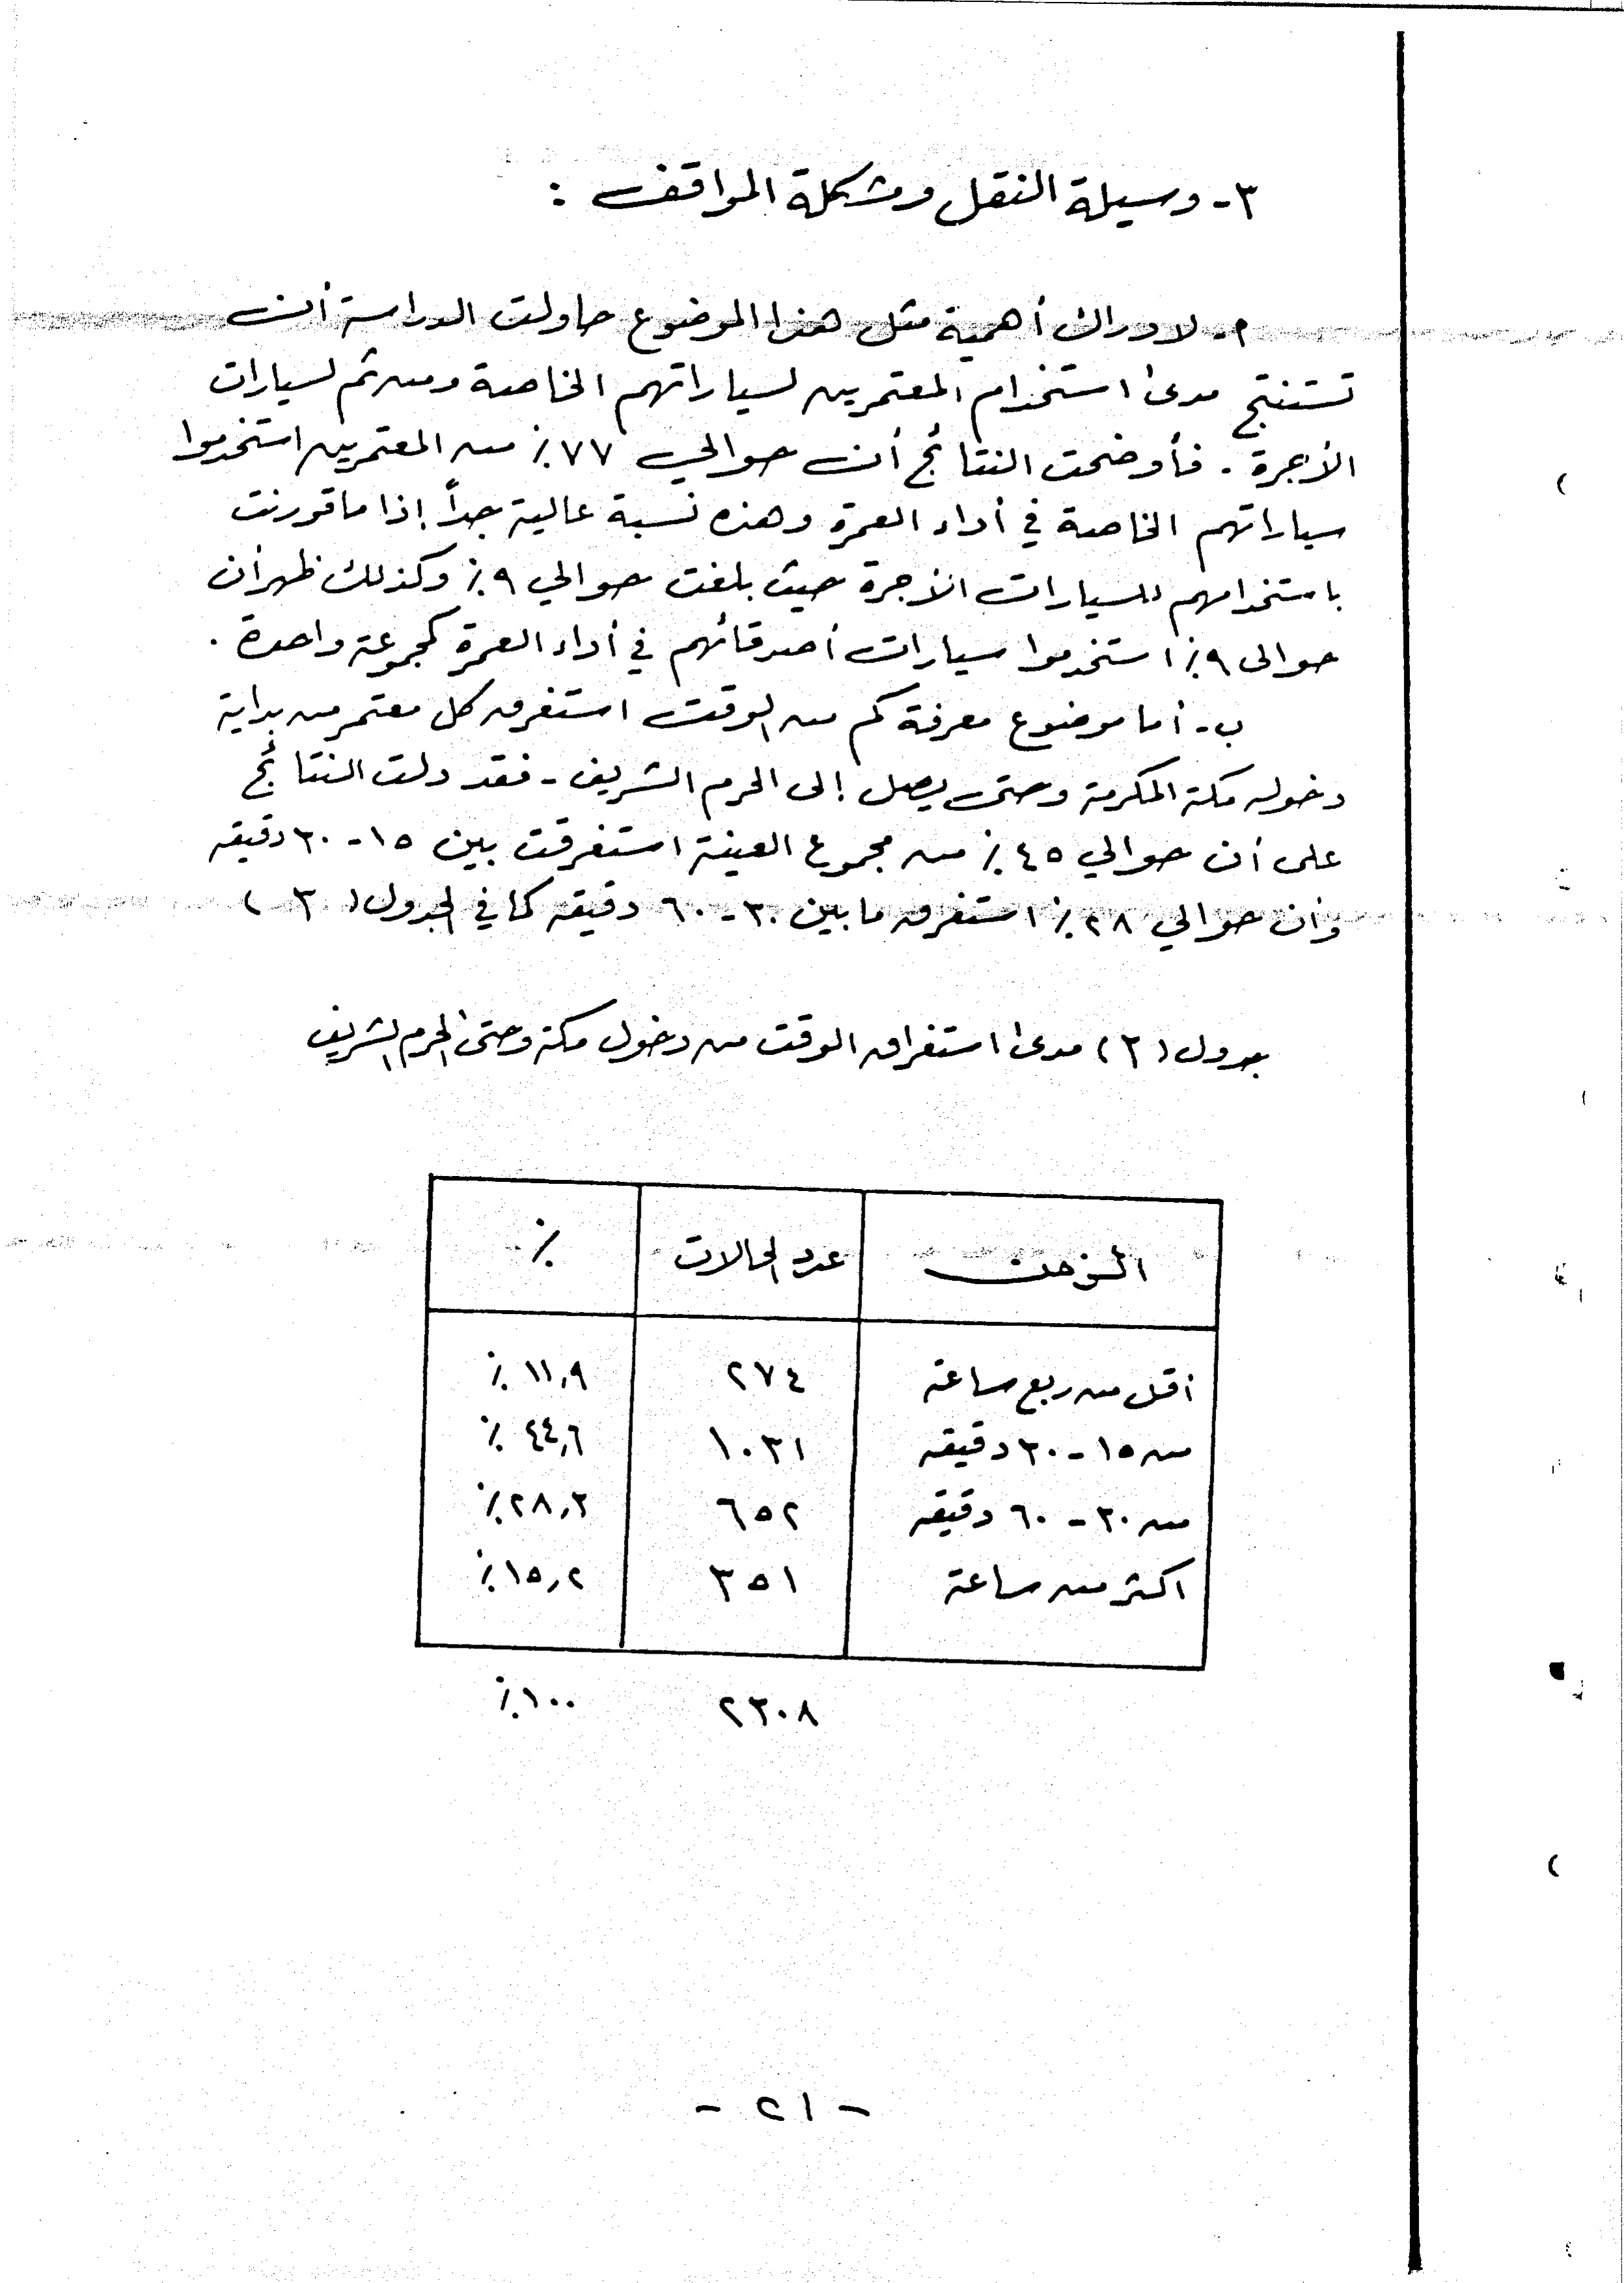 ٣- وسيلة النقل ومشكلة المواقف :
أ- لادراك أهمية مثل هذا الموضوع حاولت الدراسة أن
تستنتج مدى استخدام المعتمرين لسياراتهم الخاصة ومن ثم لسيارات
الأجرة . فأوضحت النتائج أن حوالي ٧٧٪ من المعتمرين استخدموا
سياراتهم الخاصة في أداء العمرة وهذه نسبة عالية جداً إذا ما قورنت
باستخدامهم للسيارات الأجرة حيث بلغت حوالي ٩٪ وكذلك ظهر أن
حوالى ٩٪ استخدموا سيارات أصدقائهم في أداء العمرة كمجموعة واحدة .
ب- أما موضوع معرفة كم من الوقت استغرق كل معتمر من بداية
دخوله مكة المكرمة وحتى يصل إلى الحرم الشريف - فقد دلت النتائج
على أن حوالي ٤٥٪ من مجموع العينة استغرقت بين ١٥-٣٠ دقيقه
وأن حوالي ٢٨٪ استغرق ما بين ٣٠-٦٠ دقيقه كما في الجدول (٣)
جدول (٣) مدى استغراق الوقت من دخول مكة وحتى الحرم الشريف
الزمن عدد الحالات ٪
أقل من ربع ساعة ٢٧٤ ١١,٩ ٪
من ١٥-٣٠ دقيقه ١٠٣١ ٤٤,٦ ٪
من ٣٠-٦٠ دقيقه ٦٥٢ ٢٨,٣٪
اكثر من ساعة ٣٥١ ١٥,٢٪
٢٣٠٨ ١٠٠٪
- ٢١ -